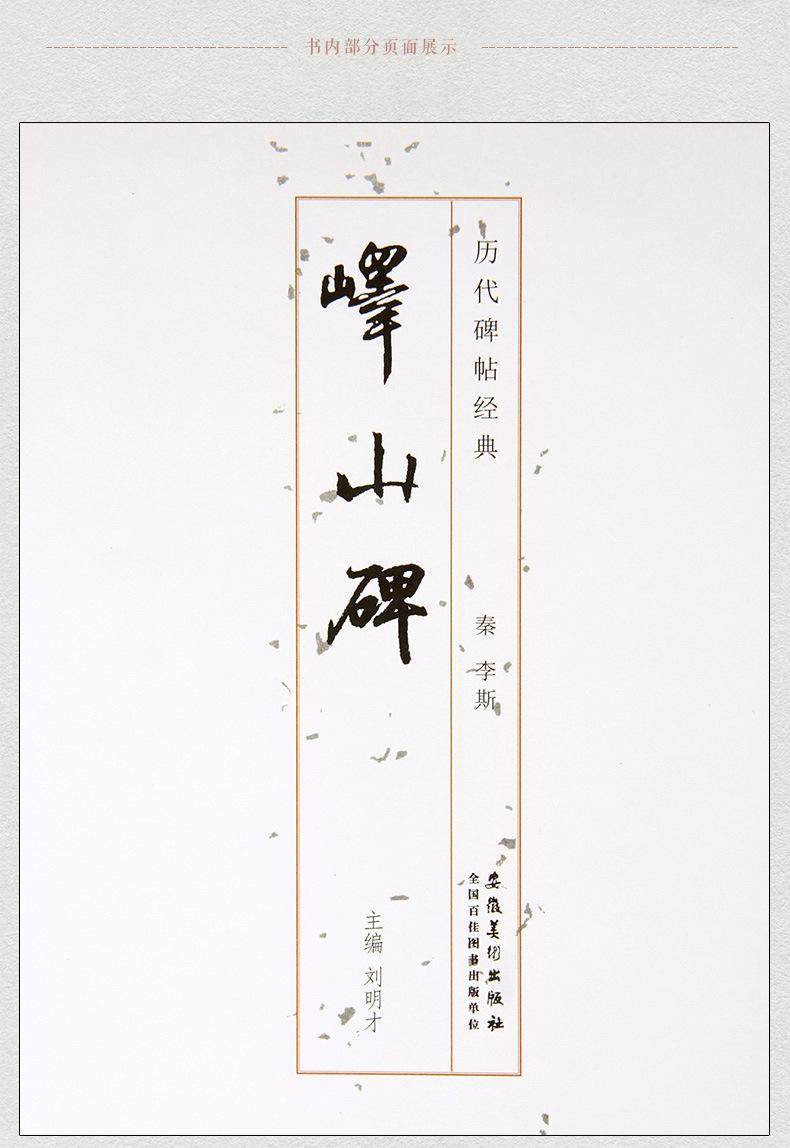 书内部分页面展示
历代碑帖经典
秦 李斯
安徽美术出版社
全国百佳图书出版单位
嶧山碑
主编 刘明才